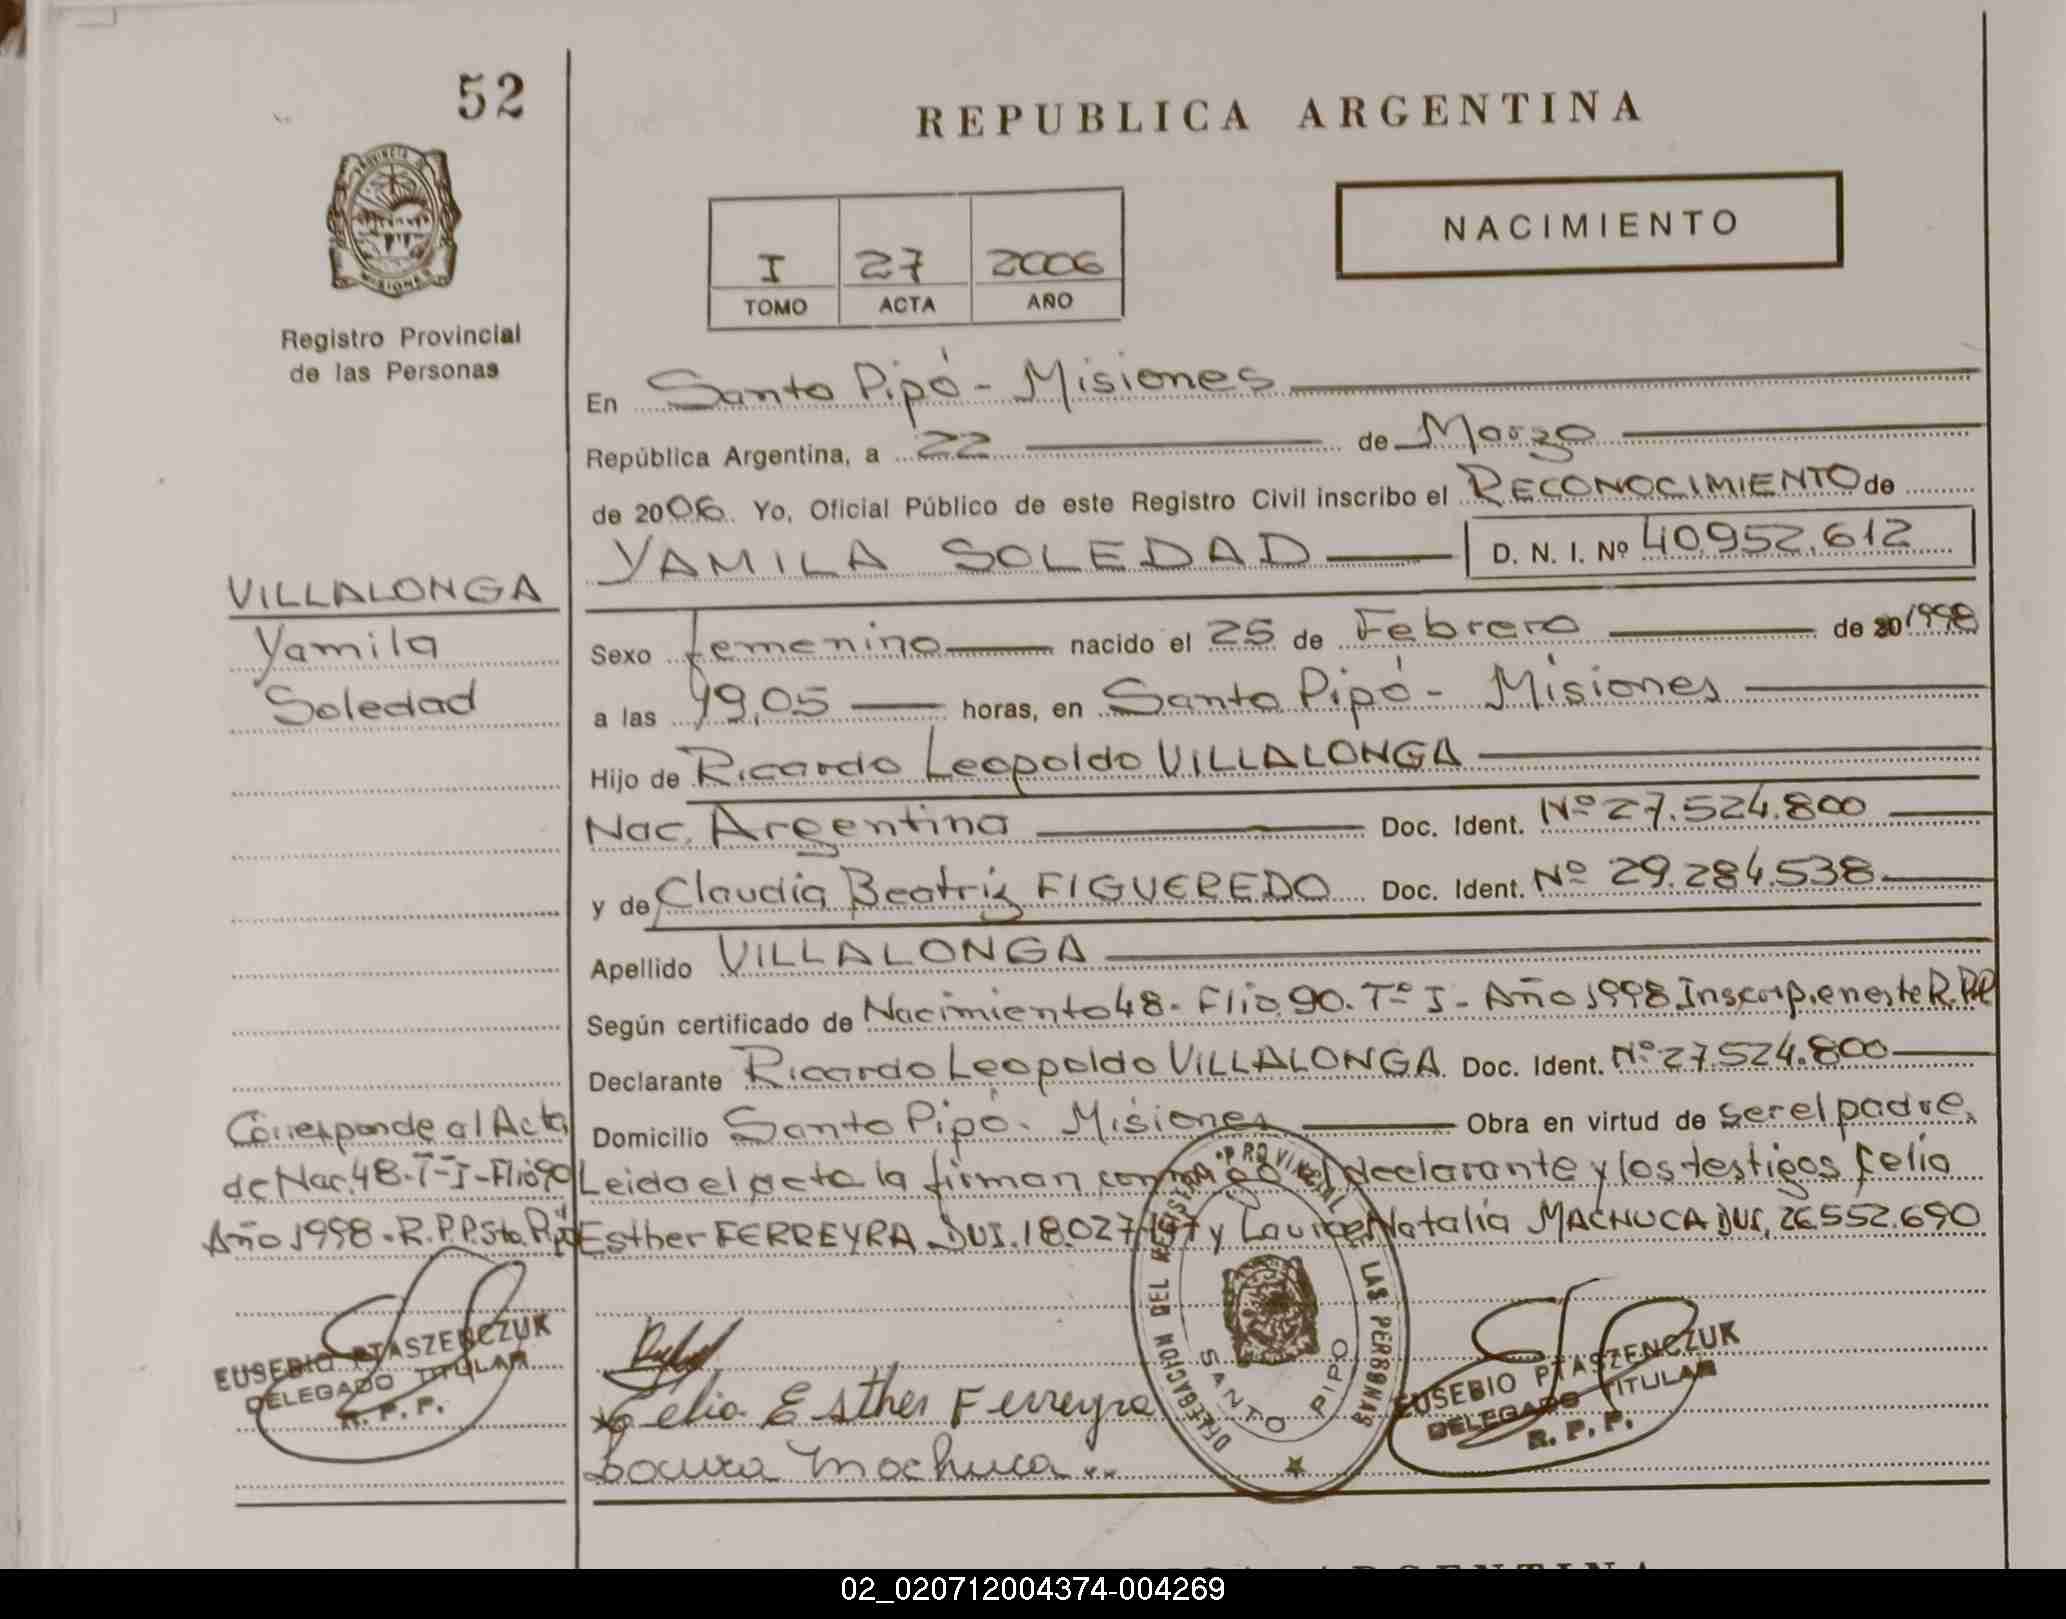 52
REPUBLICA ARGENTINA
PROVINCIA DE MISIONES
Registro Provincial
de las Personas
NACIMIENTO
I 27 2006
TOMO ACTA AÑO
En Santo Pipó - Misiones
República Argentina, a 22 de Marzo
de 2006. Yo, Oficial Público de este Registro Civil inscribo el RECONOCIMIENTO de
YAMILA SOLEDAD D. N. I. Nº 40.952.612
VILLALONGA
Yamila
Soledad
Sexo femenino nacido el 25 de Febrero de 20 1998
a las 19,05 horas, en Santo Pipó - Misiones
Hijo de Ricardo Leopoldo VILLALONGA
Nac. Argentina Doc. Ident. Nº 27.524.800
y de Claudia Beatriz FIGUEREDO Doc. Ident. Nº 29.284.538
Apellido VILLALONGA
Según certificado de Nacimiento 48 - Flio. 90. Tº I - Año 1998 Inscrip. en este R.P.P
Declarante Ricardo Leopoldo VILLALONGA. Doc. Ident. Nº 27.524.800
Domicilio Santo Pipó. Misiones Obra en virtud de ser el padre.
Leida el acta la firman conmigo el declarante y los testigos Felia
Esther FERREYRA DUI. 18.027. y Laura Natalia MACHUCA DUI. 26.552.690
Corresponde al Acta
de Nac. 48 - T - I - Flio 90
Año 1998 - R.P.P. Sto. Pipó
EUSEBIO PTASZENCZUK
DELEGADO TITULAR
R. P. P.
Felia Esther Ferreyra
Laura Machuca
DELEGACION DEL REGISTRO PROVINCIAL DE LAS PERSONAS
SANTO PIPO
EUSEBIO PTASZENCZUK
DELEGADO TITULAR
R. P. P.
02_020712004374-004269